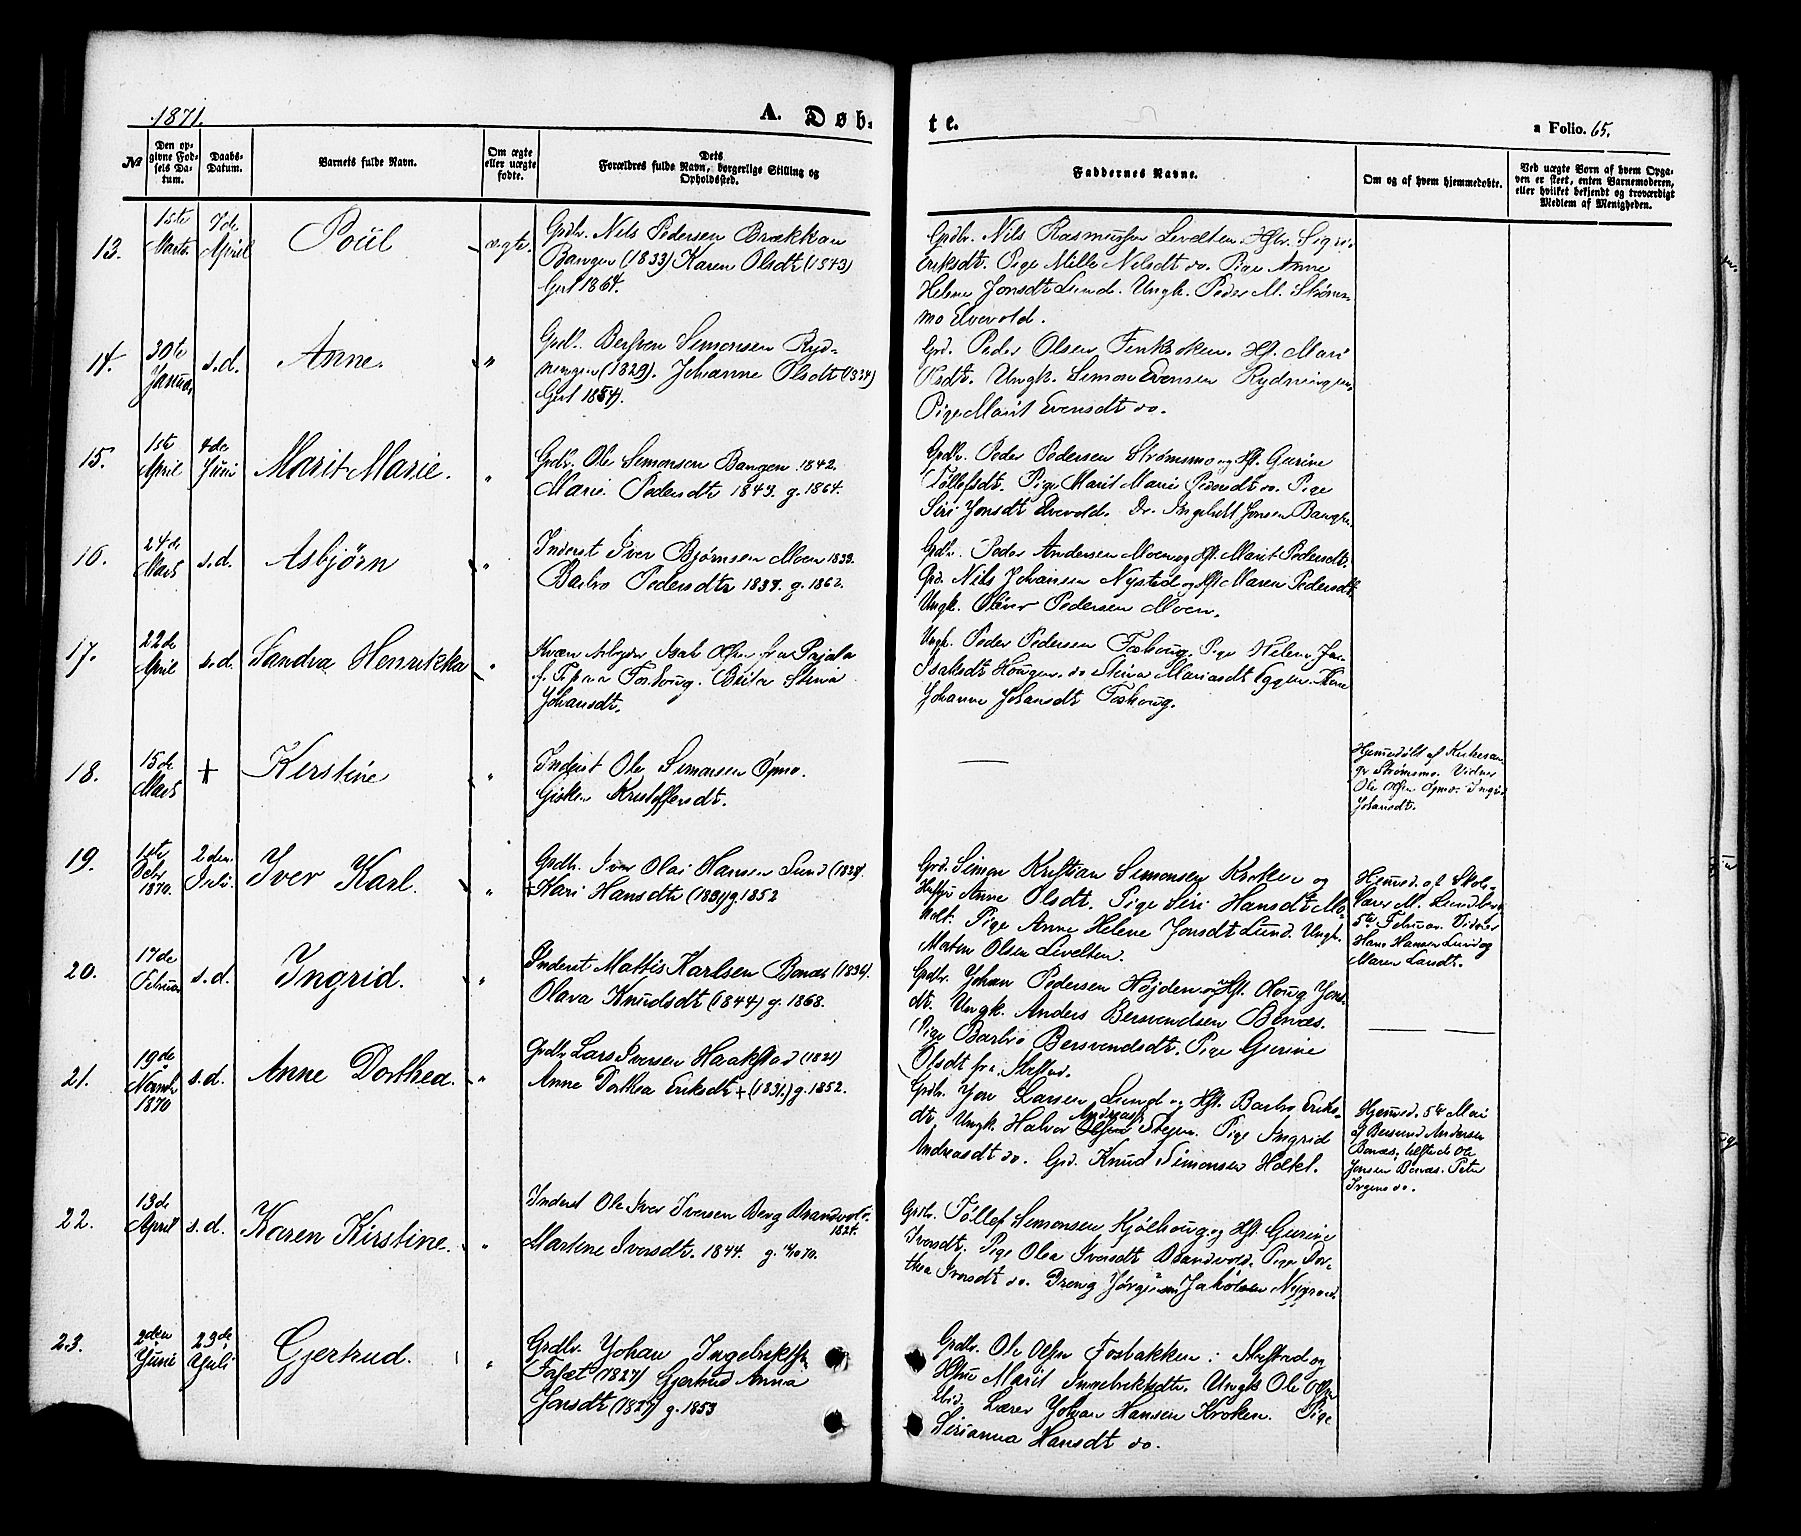 1871.
A. Døb-
te.
a Folio. 65.
№
Den op-
givne Fød-
sels Da-
tum.
Daabs-
Datum.
Barnets fulde Navn.
Om ægte
eller uægte
fødte.
Dets
Forældres fulde Navn, borgerlige Stilling og
Opholdssted.
Faddernes Navne.
Om og af hvem hjemmedøbte.
Ved uægte Børn af hvem Opga-
ven er skeet, enten Barnemoderen,
eller hvilket bekjendt og troværdigt
Medlem af Menigheden.
13.
1ste
Marts
7de
April
Poul
ægte.
Grdbr. Nils Pedersen Brækkan
Bangen (1833) Karen Olsdt (1843)
Gift 1864.
Grdbr. Nils Rasmussen Levelten. Hstr. Sigri
Eriksdt. Pige Mille Nilsdt do. Pige Anne
Helene Jonsdt Lund. Ungk. Peder M. Strøms-
mo Elvevold.
14.
30te
Januar
s.d.
Anne.
"
Grdb. Bersven Simonsen Ryd-
ningen (1829). Johanne Olsdt (1834)
Gift 1854).
Grd. Peder Olsen Finkroken. Hst. Mari
Olsdt. Ungk. Simon Evensen Rydningen,
Pige Marit Evensdt do.
15.
1ste
April
4de
Juni
Marit Marie.
"
Grdb. Ole Simonsen Bangen 1842.
Marie Pedersdt 1843. g. 1864.
Grdb. Peder Pedersen Strømsmo og Hst. Gurine
Tollefsdt. Pige Marit Marie Pedersdt do. Pige
Siri Jonsdt Elvevold. Dr. Ingebrikt Jonsen Bangen
16.
24de
Marts
s.d.
Asbjørn
"
Inderst Iver Bjørnsen Moen 1833.
Barbro Pedersdt 1837. g. 1862.
Grdb. Peder Andersen Moen og Hst. Marit Pedersdt.
Grd. Nils Johansen Nysted og Hst. Maren Pedersdt.
Ungk. Oliver Pedersen Moen.
17.
22de
April
s.d.
Sandra Henrikka
"
Kvæn Arbeider Isak Olsen fra Pajala
Foshoug. Brita Stina
Johansdt.
Ungk. Peder Pedersen Foshoug. Pige Helene
Isaksdt Hougen. do Stina Mariasdt Eggen. Kone
Johanne Johansdt Foshoug.
18.
15de
Marts
+
Kirstine
"
Inderst Ole Simonsen Øpmo.
Gisken Kristoffersdt.
—
Hjemmedøbt af Kirkesan-
ger Strømsmo. Vidner
Ole Olsen Øpmo. Ingrid
Johansdt.
19.
1ste
Octr.
1870.
2den
Juli.
Iver Karl.
"
Grdbr. Iver Olai Hansen Lund (1834
Mari Hansdt (1831) g. 1852
Grd. Simon Kristian Simonsen Kroken og
Hustru Anne Olsdt. Pige Siri Hansdt Mo-
holt. Pige Anne Helene Jonsdt Lund. Ungk.
Morten Olsen Levelten.
Hjemd. af Skole-
lærer M. Lundberg
5te Februar. Vidner
Hans Hansen Lund og
Maren Lundt.
20.
17de
Februar
s.d.
Ingrid.
"
Inderst Mattis Karlsen Bonæs (1836).
Olava Knudsdt (1844) g. 1868.
Grdbr. Johan Pedersen Højden og Hst. Houg Jons-
dt. Ungk. Anders Bersvendsen Bonæs.
Pige Barbro Bersvendsdt. Pige Gurine
Olsdt fra Skifted.
—
21.
19de
Novmbr
1870
s.d.
Anne Dorthea.
"
Grdb. Lars Iversen Haakstad (1821)
Anne Dorthea Eriksdt + (1831.) g. 1852.
Grdb. Jon Larsen Lund og Hst. Barbro Eriks-
dt, Ungk. Halvor Andreass Stegen. Pige Ingrid
Andreasdt do. Grd. Knud Simonsen Holtet.
Hjemmd. 5te Mai
af Bersvend Andersen
Bonæs, tilstede Ole
Jonsen Bonæs. Peter
Irgens do.
22.
13de
April
s.d.
Karen Kirstine.
"
Inderst Ole Iver Iversen Berg Brandvold.
1824.
Martine Iversdt. 1844. g. 4/10 70.
Grdbr. Tollef Simonsen Kjølhoug og Hst. Gurine
Iversdt. Pige Olea Iversdt Brandvold. Pige Dor-
thea Iversdt do. Dreng Jørgen Jakobsen Nygaard.
23.
2den
Juni
23de
Juli
Gjertrud.
"
Grdbr. Johan Ingebriktsen
Fosæt (1827) Gjertrud Anna
Jonsdt (1827) g. 1853
Grdbr. Ole Olsen Fosbakken i Skifted og
Hstru Marit Ingebriktsdt. Ungk Ole Olsen
ibid. Lærer Johan Hansen Kroken. Pige
Sirianna Hansdt do.